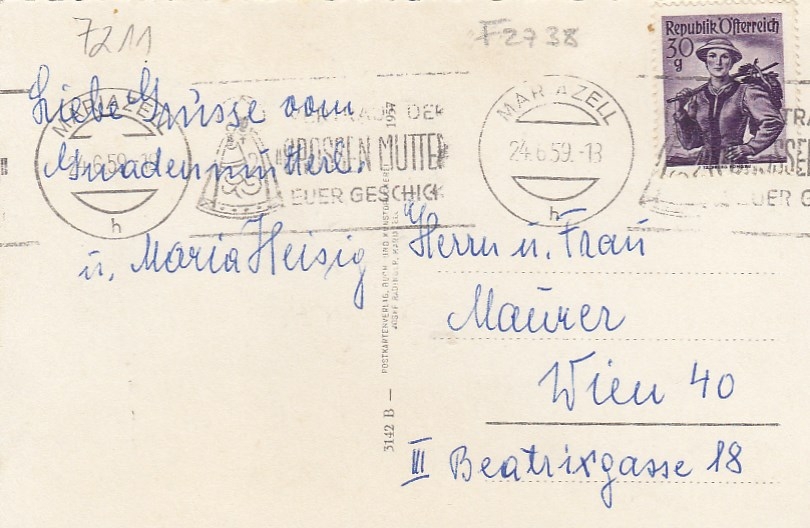 7211
F2738
Republik Österreich
30
g
MARIAZELL
24.6.59.-13
h
Liebe Grüsse vom
Gnadenmutterl.
u. Maria Heisig
GROSSEN MUTTER
EUER GESCHICK
MARIAZELL
24.6.59.-13
h
TRA
EUER G
1957
POSTKARTENVERLAG, BUCH- UND KUNSTDRUCK
JOSEF RADINGER, MARIAZELL
3142 B —
Herrn u. Frau
Maurer
Wien 40
III Beatrixgasse 18